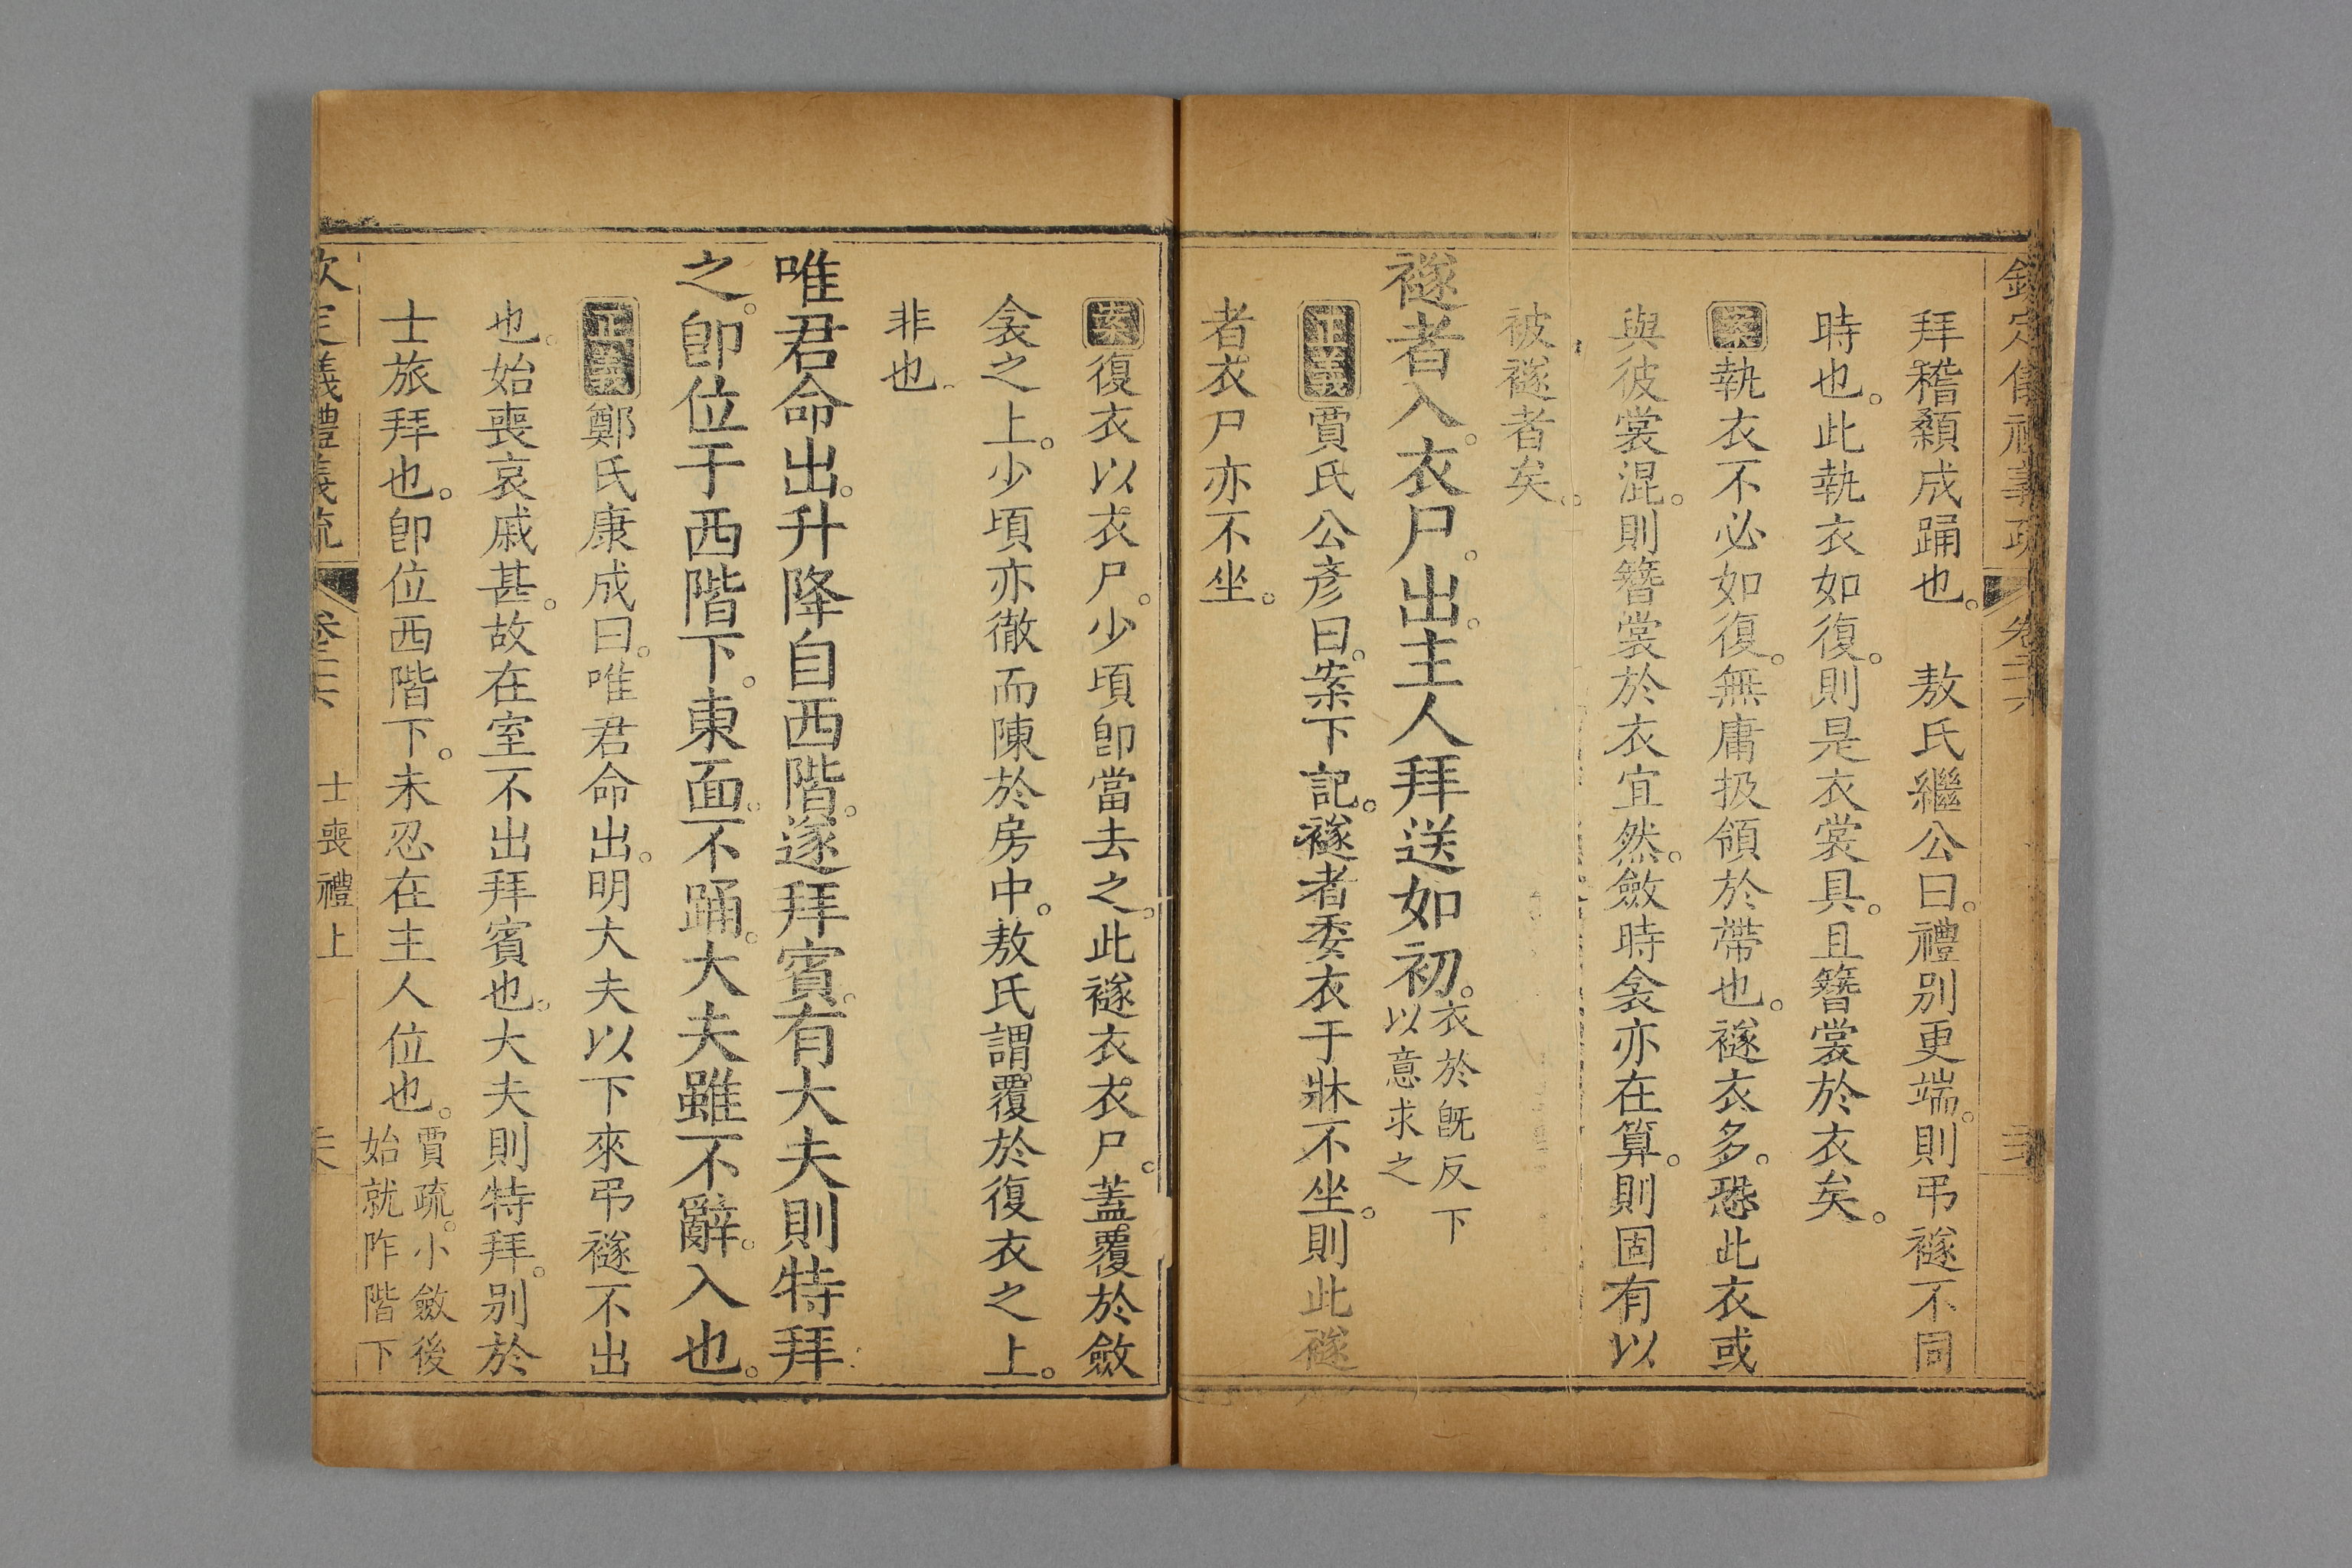 欽定儀禮義疏 卷二十六
拜稽顙成踊也。 敖氏繼公曰。禮別更端。則弔襚不同
時也。此執衣如復。則是衣裳具。且簪裳於衣矣。
案執衣不必如復。無庸扱領於帶也。襚衣多。恐此衣或
與彼裳混。則簪裳於衣宜然。斂時衾亦在算。則固有以
被襚者矣。
襚者入。衣尸。出。主人拜送如初。衣於旣反下
以意求之
正義賈氏公彥曰。案下記。襚者委衣于牀不坐。則此襚
者衣尸亦不坐。
案復衣以衣尸。少頃卽當去之。此襚衣衣尸。蓋覆於斂
衾之上。少頃亦徹而陳於房中。敖氏謂覆於復衣之上。
非也。
唯君命出。升降自西階。遂拜賓。有大夫則特拜
之。卽位于西階下。東面。不踊。大夫雖不辭。入也。
正義鄭氏康成曰。唯君命出。明大夫以下來弔襚不出
也。始喪哀戚甚。故在室不出拜賓也。大夫則特拜。別於
士旅拜也。卽位西階下。未忍在主人位也。賈疏。小斂後
始就阼階下
欽定儀禮義疏 卷二十六 士喪禮上